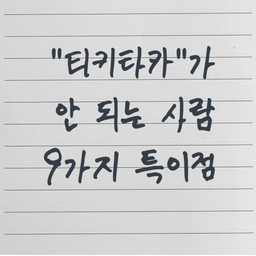 "티키타카"가
안 되는 사람
9가지 특이점